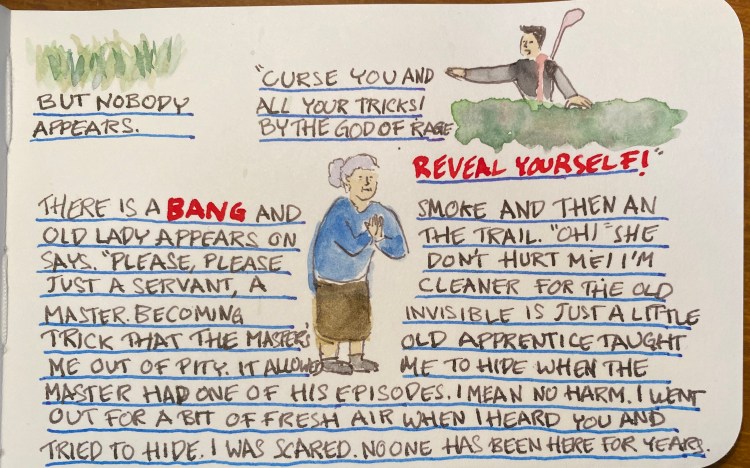 BUT NOBODY
APPEARS.
"CURSE YOU AND
ALL YOUR TRICKS!
BY THE GOD OF RAGE
REVEAL YOURSELF!"
THERE IS A BANG AND SMOKE AND THEN AN
OLD LADY APPEARS ON THE TRAIL. "OH!" SHE
SAYS. "PLEASE, PLEASE DON'T HURT ME! I'M
JUST A SERVANT, A CLEANER FOR THE OLD
MASTER. BECOMING INVISIBLE IS JUST A LITTLE
TRICK THAT THE MASTER'S OLD APPRENTICE TAUGHT
ME OUT OF PITY. IT ALLOWED ME TO HIDE WHEN THE
MASTER HAD ONE OF HIS EPISODES. I MEAN NO HARM. I WENT
OUT FOR A BIT OF FRESH AIR WHEN I HEARD YOU AND
TRIED TO HIDE. I WAS SCARED. NO ONE HAS BEEN HERE FOR YEARS.